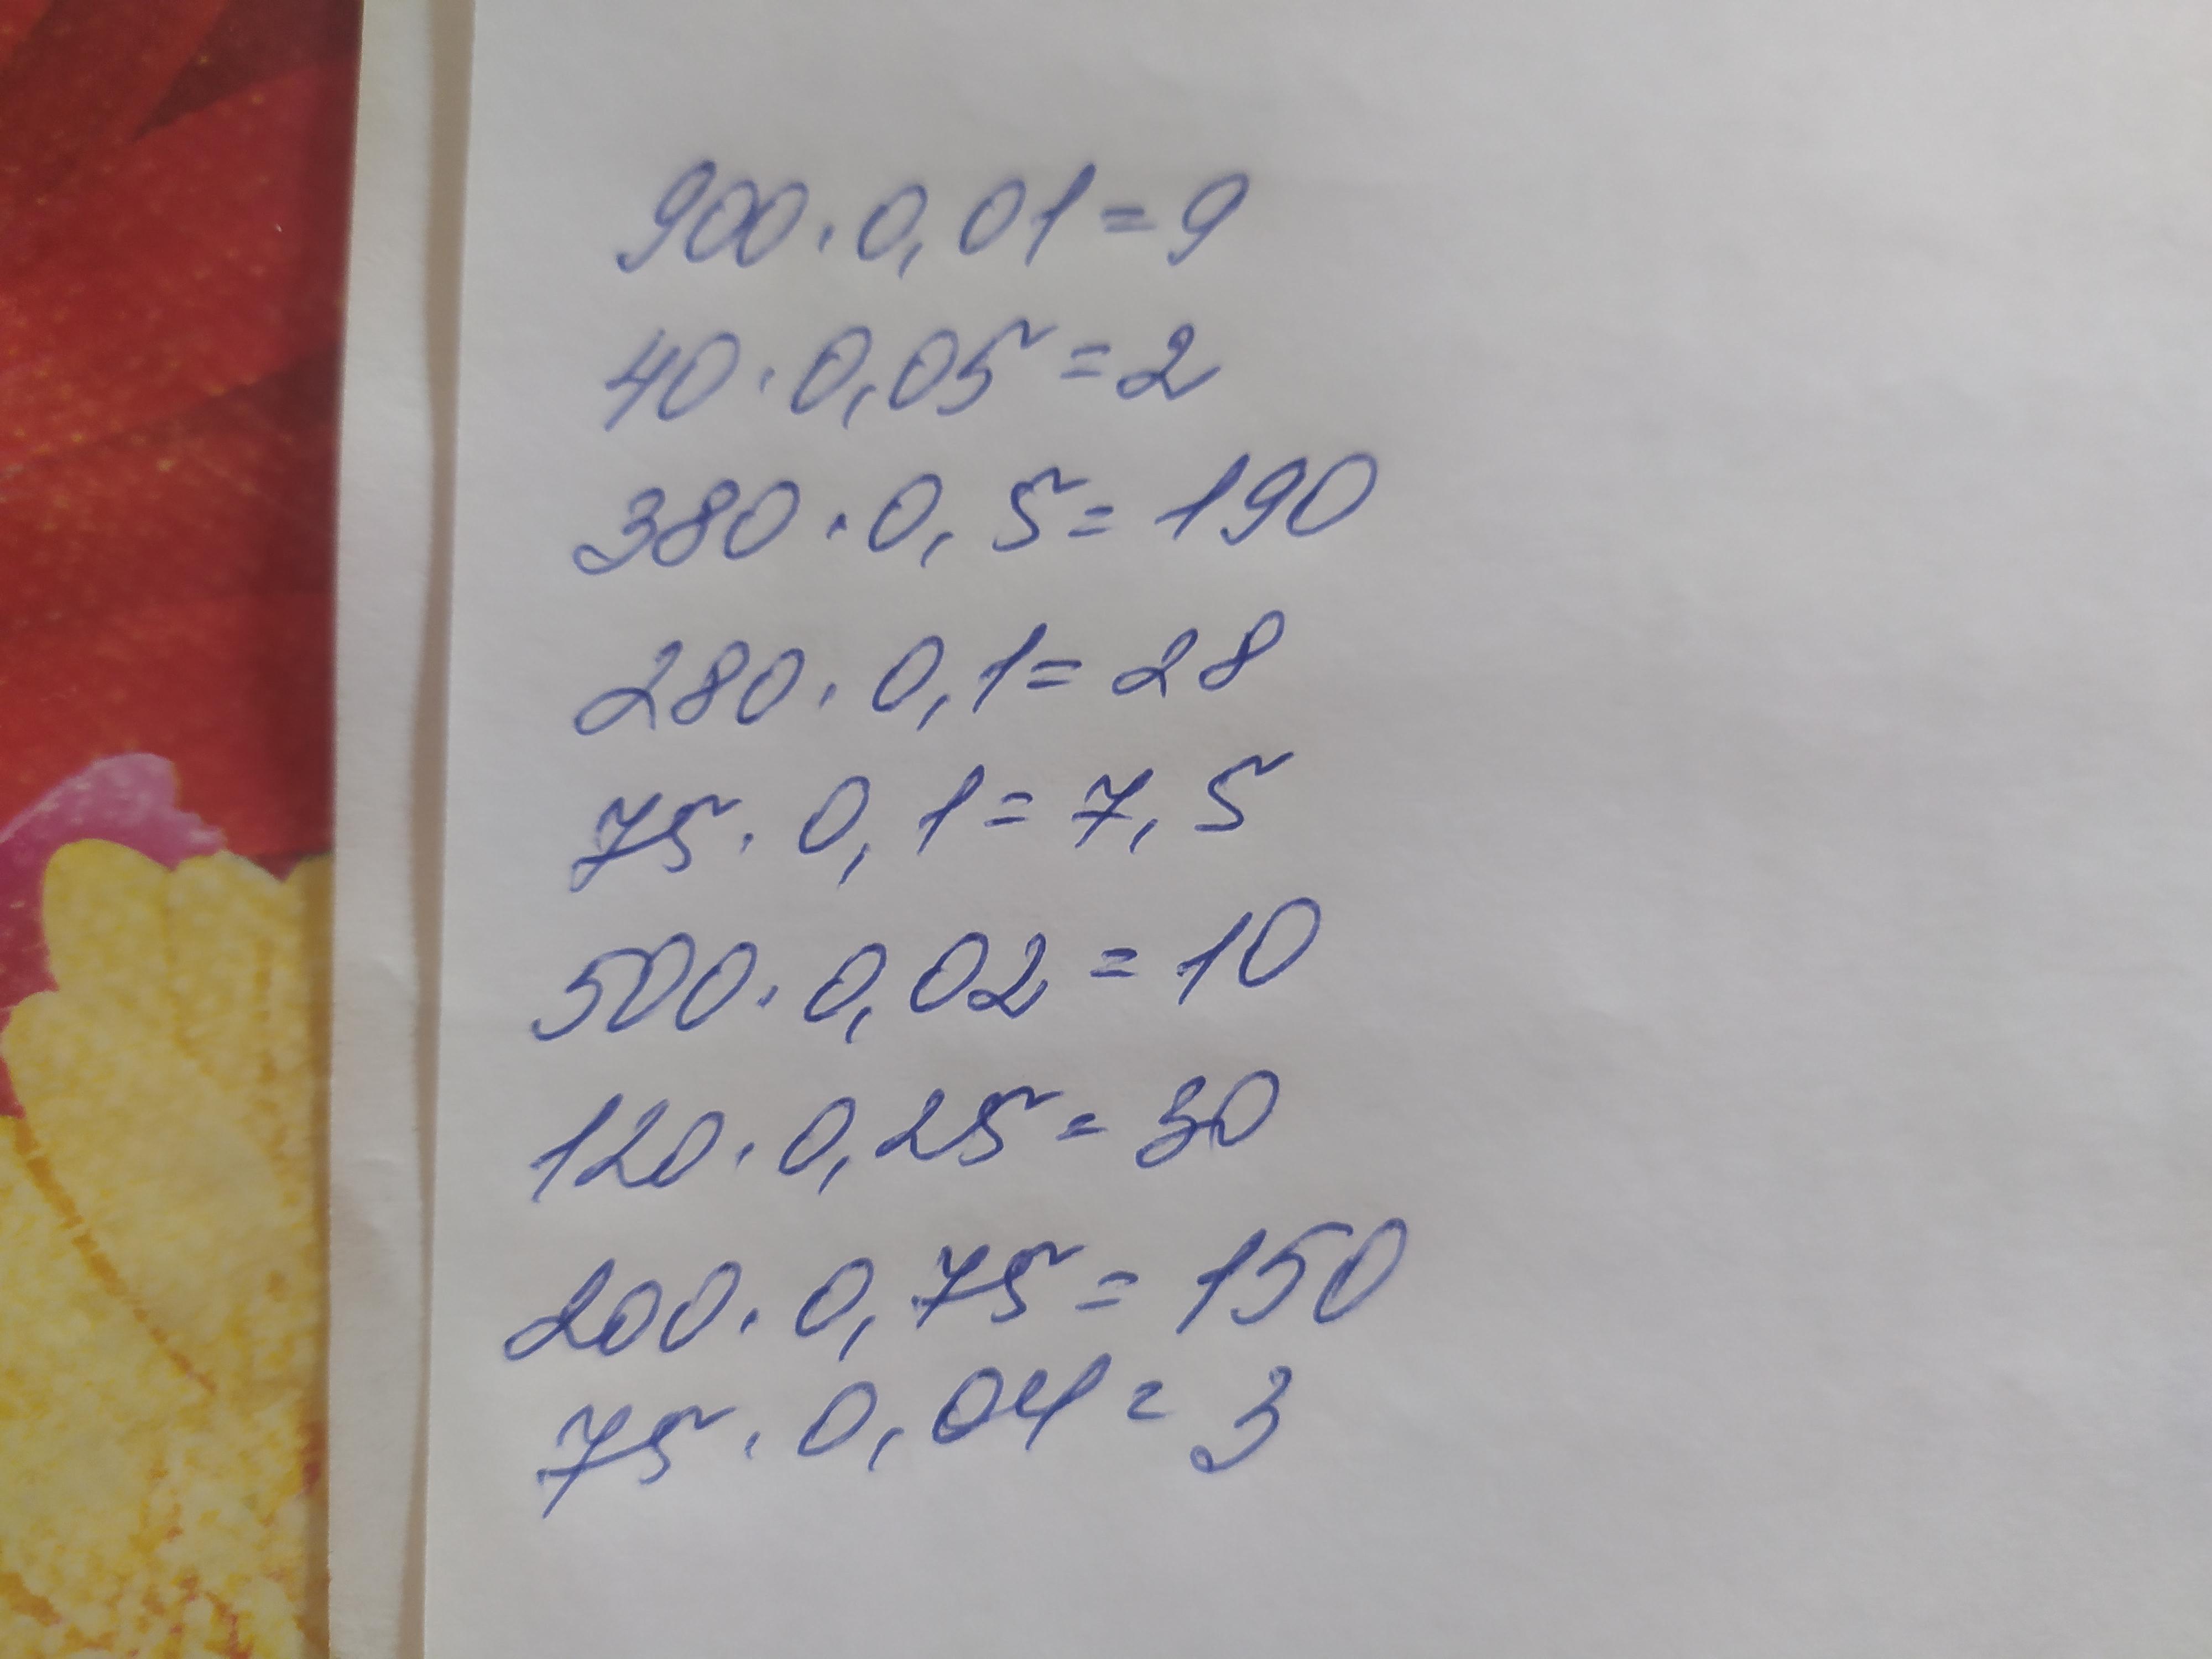 900·0,01=9
40·0,05=2
380·0,5=190
280·0,1=28
75·0,1=7,5
500·0,02=10
120·0,25=30
200·0,75=150
75·0,04=3